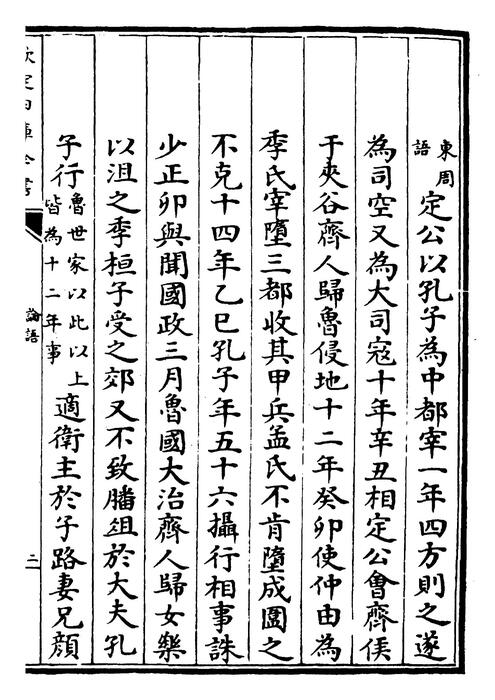 東周
語
定公以孔子為中都宰一年四方則之遂
為司空又為大司寇十年辛丑相定公會齊侯
于夾谷齊人歸魯侵地十二年癸卯使仲由為
季氏宰墮三都收其甲兵孟氏不肯墮成圍之
不克十四年乙巳孔子年五十六攝行相事誅
少正卯與聞國政三月魯國大治齊人歸女樂
以沮之季桓子受之郊又不致膰俎於大夫孔
子行
魯世家以此以上
皆為十二年事
適衛主於子路妻兄顔
欽定四庫全書
論語
二